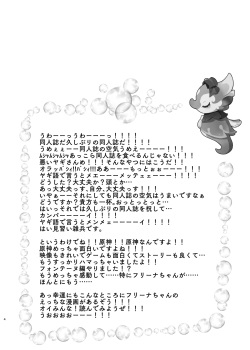 うわーーっうわーーーっ！！！！
同人誌だ久しぶりの同人誌だ！！！！
うめぇぇーー同人誌の空気うめえーーーー！！！
ﾑｼｬﾑｼｬﾑｼｬあっこら同人誌を食べるんじゃない！！！
悪いヤギさんめ！！！そんなやつにはこうだ！！
オラッﾊﾞｼｨ!!ﾊﾞｼｨ!!!ああーーーもっとぉぉーーーー！！
ヤギ語で言うとメンメェーーメッヂュェーーー！！
どうした？大丈夫か？頭とか…
あっ大丈夫っす、自分、大丈夫っす！！
いやぁーーそれにしても同人誌の空気はうまいですなぁ
どうですか？貴方も一杯。おっとっとっと…
はいっそれでは久しぶりの同人誌を祝して…
カンパーーーーイ！！！！！
ヤギ語で言うとメンメーーーーイ！！！！！
はい見習い雑兵です。
というわけでね！！原神！！！原神なんですよ！！
原神めっちゃ面白いですよね！！
映像もきれいでゲームも面白くてストーリーも良くて…
もうすっかりハマっちゃいましたよ！！
フォンテーヌ編やりました！？
もうめっちゃ感動して…特にフリーナちゃんが……
ほんとにもう……
あっ幸運にもこんなところにフリーナちゃんの
えっちな漫画があるぞぅ！！
オイみんな！読んでみようぜ！！！
うおおおおーーー！！！！